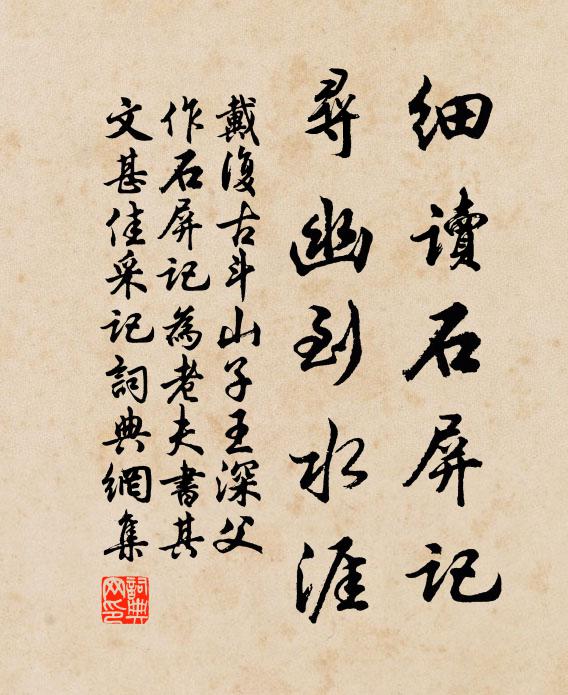 細讀石屏記
尋幽到水涯
戴復古斗山子王深父
作石屏記為老夫書其
文甚佳采記詞典網集
詞典
网印